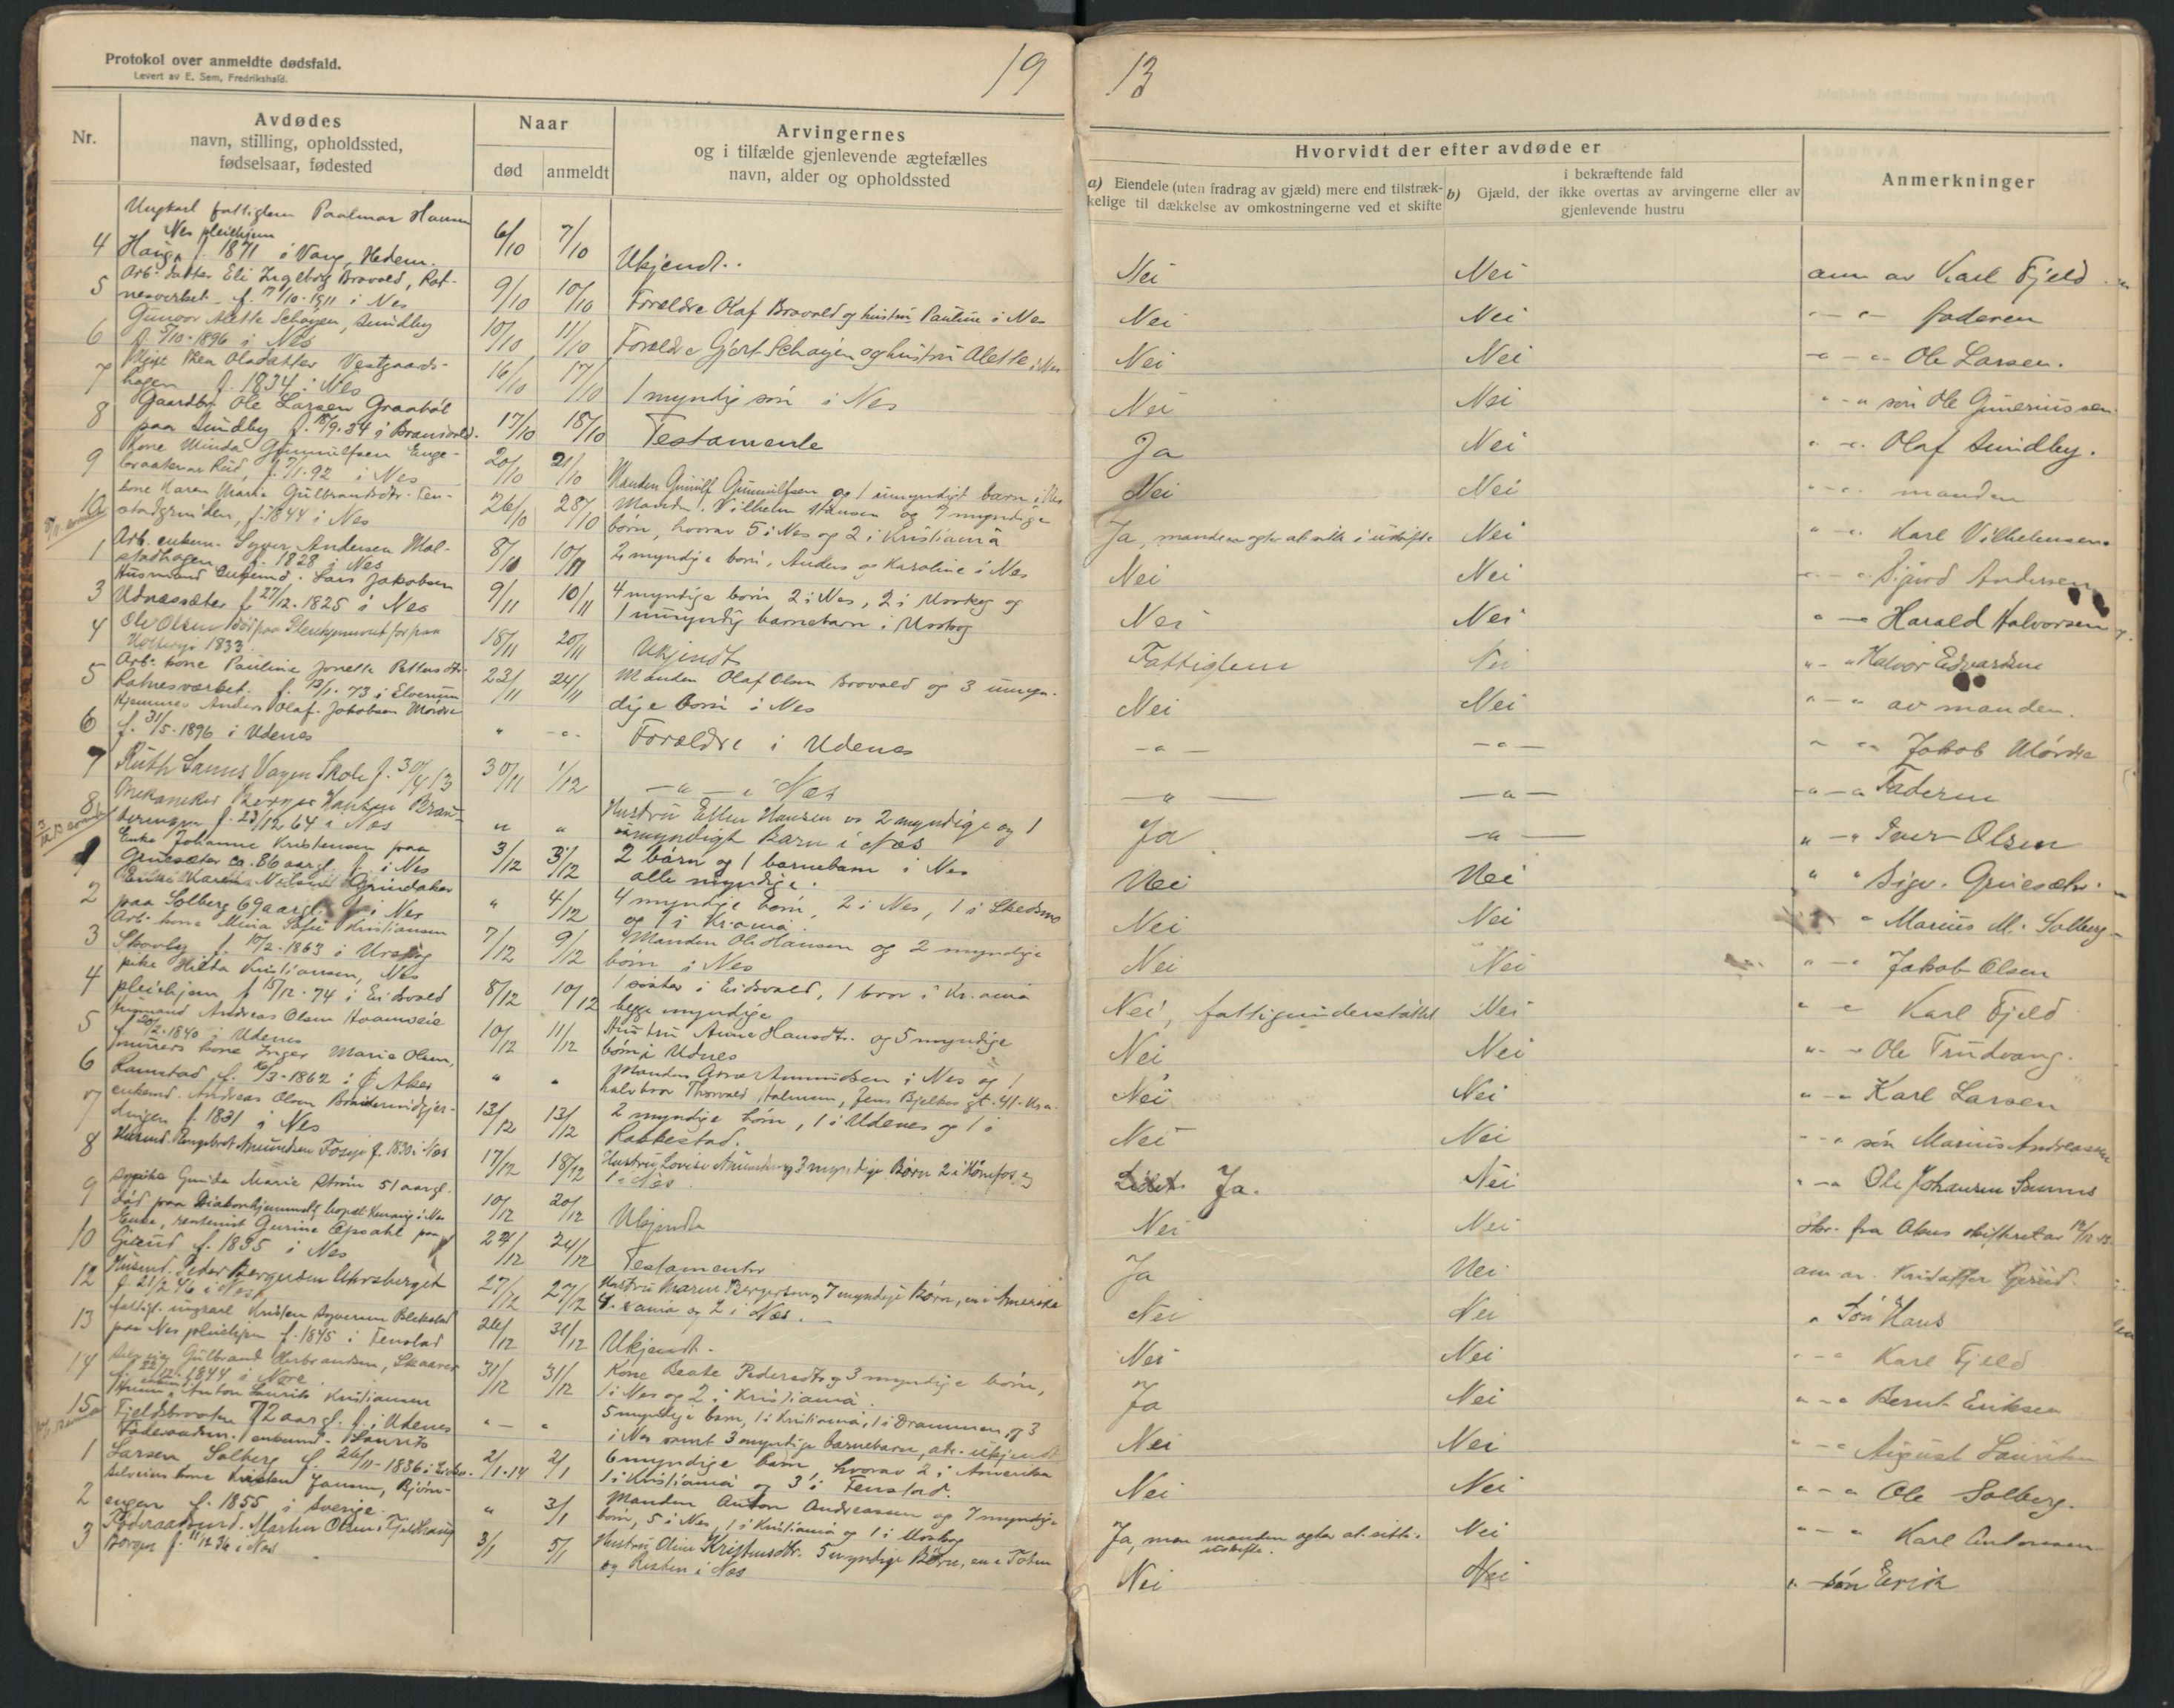 Protokol over anmeldte dødsfald.
Levert av E. Sem, Fredrikshald.
19
13
Nr.
Avdødes
navn, stilling, opholdssted,
fødselsaar, fødested
Naar
død
anmeldt
Arvingernes
og i tilfælde gjenlevende ægtefælles
navn, alder og opholdssted
Hvorvidt der efter avdøde er
a) Eiendele (uten fradrag av gjæld) mere end tilstræk-
kelige til dækkelse av omkostningerne ved et skifte
i bekræftende fald
b) Gjæld, der ikke overtas av arvingerne eller av
gjenlevende hustru
Anmerkninger
Ungkarl fattiglem Paalmar Hansen
Nes pleiehjem
4 Hauga f. 1871 i Vang, Hedem. 6/10 7/10 Ukjendt. Nei Nei anm av Karl Fjeld
5 Arb. datter Eli Ingeborg Brovold, Rot-
nesverket f. 7/10-1911 i Nes 9/10 10/10 Forældre Olaf Brovold og hustru Pauline i Nes Nei Nei " - " faderen
6 Gunvor Alette Schøyen, Sundby
f. 5/10-1896 i Nes 10/10 11/10 Forældre Gjert Schøyen og hustru Alette i Nes Nei Nei " - " Ole Larsen.
7 Thea Olsdatter Vestgaards-
hagen f. 1834 i Nes 16/10 17/10 1 myndig søn i Nes Nei Nei " - " søn Ole Guneriussen
8 Gaardbr. Ole Larsen Graabøl
paa Sundby f. 18/9-34 i Brandvold. 17/10 18/10 Testamente Ja Nei " - " Olaf Sundby.
9 Kone Minda Gunnulfsen Enge-
braaten av Rud, f. 7/1-92 i Nes 20/10 21/10 Manden Gunulf Gunnulfsen og 1 umyndigt barn i Nes Nei Nei " - " manden
10 kone Karen Marie Gulbrandsdtr. Fen-
stadgrinden, f. 1844 i Nes 26/10 28/10 Manden Vilhelm Hansen og 7 myndige
børn, hvorav 5 i Nes og 2 i Kristiania Ja, manden agter at sitte i uskifte Nei " - " Karl Vilhelmsen
1 Arb. enkem. Syver Andersen Mol-
stadhagen f. 1828 i Nes 8/10 10/11 2 myndige børn, Anders og Karoline i Nes Nei Nei " - " Sigurd Andersen
3 Husmand Enkemd. Lars Jakobsen
Udnessæter f. 27/12-1825 i Nes 9/11 10/11 4 myndige børn 2 i Nes, 2 i Urskog og
1 umyndig barnebarn i Urskog Nei Nei " - " Harald Halvorsen
4 Ole Olsen død paa Pleiehjemmet for paa
1833. 18/11 20/11 Ukjendt Fattiglem Nei " - " Halvor Edvardsen
5 Arb. kone Pauline Jonette Pettersdtr.
Rotnesværket. f. 13/1-73 i Elverum 23/11 24/11 Manden Olaf Olsen Brovold og 3 umyn-
dige børn i Nes Nei Nei " - " av manden.
6 Hjemmev. Anders Olaf Jakobsen Mørdre
f. 31/5-1896 i Udenes " - " - Forældre i Udenes - " - - " - " - " Jakob Mørdre
7 Ruth Sannes Vagen Skole f. 30/4 13 30/11 1/12 - " - i Næs - " - - " - " - " Faderen
8 Mekaniker Berger Hansen Bran-
f. 23/12 64 i Nes " " Hustru Ellen Hansen os 2 myndige og 1
umyndigt Barn i Næs Ja - " - " - " Iver Olsen
1 Enke Johanne Kristensen paa
Gruesæter ca. 86 aar gl. f. i Nes 3/12 3/12 2 børn og 1 barnebarn i Nes
alle myndige. Nei Nei " " Sigv. Gruesæter
2 Enke Karen Nilsen Grindaker
paa Solberg 69 aar gl. f. i Nes " 4/12 4 myndige børn, 2 i Nes, 1 i Skedsmo
og 1 i Kr.ania Nei Nei " Marius M. Solberg
3 Arb. kone Mina Sofie Kristiansen
Skovby f. 10/2-1863 i Urskog 7/12 9/12 Manden Ole Hansen og 2 myndige
børn i Nes Nei Nei " - " Jakob Olsen
4 pike Hilda Kristiansen, Nes
pleiehjem f. 15/12-74 i Eidsvold 8/12 10/12 1 søster i Eidsvold, 1 bror i Kr.ania
begge myndige Nei, fattigunderstøttet Nei " - " Karl Fjeld
5 Husmand Andreas Olsen Haamveie
f. 20/2-1840 i Udenes 10/12 11/12 Hustru Anne Hansdtr. og 5 myndige
børn i Udnes Nei Nei " - " Ole Trudvang.
6 murers kone Inger Marie Olsen,
Ramstad f. 6/3-1862 i Ø. Aker " " Manden Amundsen i Nes og 1
halvbror Thorvald Halmen, Jens Bjelkes gt. 41 Kr.a. Nei Nei " - " Karl Larsen
7 enkemd. Andreas Olsen
f. 1831 i Nes 13/12 13/12 2 myndige børn, 1 i Udenes og 1 i
Rakkestad. Nei Nei " - " søn Marius Andreassen
8 Husmd. Engebret Amundsen Fosser f. 1830 i Nes 17/12 18/12 Hustru Lovise Amundsen og 3 myndige Børn 2 i Hønefos og
1 i Næs Ja. Nei " - " Ole Johansen Sannes
9 Sypike Gunda Marie Strøm 51 aar gl.
død paa Diakonhjemmet, bopæl Henaug i Nes 10/12 20/12 Ukjendt Nei Nei Skr. fra Akers skifteret av 19/12-13.
10 Enke, rentenist Gurine Opsahl paa
Gjerud f. 1835 i Nes 23/12 24/12 Testamente Ja Nei anm av. Kristoffer Gjerud.
12 Husmd. Peder Bergersen Uhrsberget
f. 21/2 46 i Nes 27/12 27/12 Hustru Maren Bergersen og 7 myndige Børn, en i Amerika
4 i Kr.ania og 2 i Næs. Nei Nei " Søn Hans
13 fattigl. ungkarl Kristen Syversen Blekstad
paa Nes pleiehjem f. 1845 i Fenstad 26/12 31/12 Ukjendt. Nei Nei " - " Karl Fjeld
14 Selveier Gulbrand Herbrandsen, Skaarer
f. 22/12-1844 i Nore. 31/12 31/12 Kone Beate Pedersdtr og 3 myndige børn,
1 i Nes og 2 i Kristiania. Ja Nei " - " Bernt Eriksen
15 Husm. enkemd. Anton Laurits Kristiansen
Fjeldbraaten 72 aar gl. f. i Udenes " - " 5 myndige børn, 1 i Kristiania, 1 i Drammen, og 3
i Nes samt 3 myndige barnebarn, adr. ukjendt Nei Nei " - " August Lauritsen
1 Føderaadsm. enkemd. Laurits
Larsen Solberg f. 26/11-1836 i 2/1-14 2/1 6 myndige børn hvorav 2 i Amerika
1 i Kristiania og 3 i Fenstad. Nei Nei " - " Ole Solberg.
2 Selveiers kone Kristine Jansen, Bjørn-
engen f. 1855 i Sverige. " 3/1 Manden Anton Andreassen og 7 myndige
børn, 5 i Nes, 1 i Kristiania og 1 i Urskog Ja, men manden agter at sitte i
uskifte. Nei " - " Karl Antonsen
3 Føderaadsmd. Martin Olsen Fjeldhaug
Borgen f. 11/12 36 i Nes 3/1 5/1 Hustru Oline Kristensdtr. 5 myndige Børn, en i Toten
og Resten i Næs Nei Nei " - søn Erik